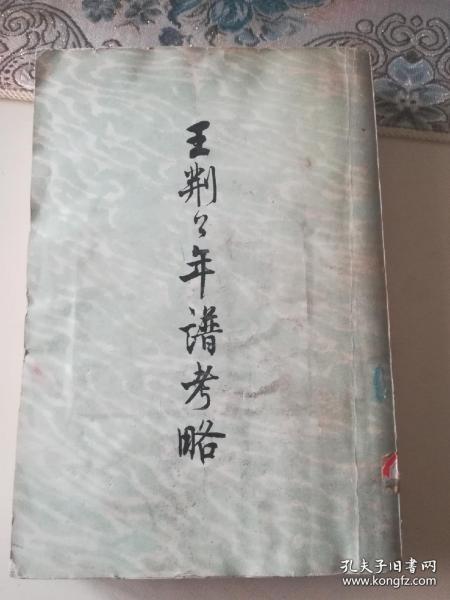 王荆公年譜考略
孔夫子旧书网
www.kongfz.com